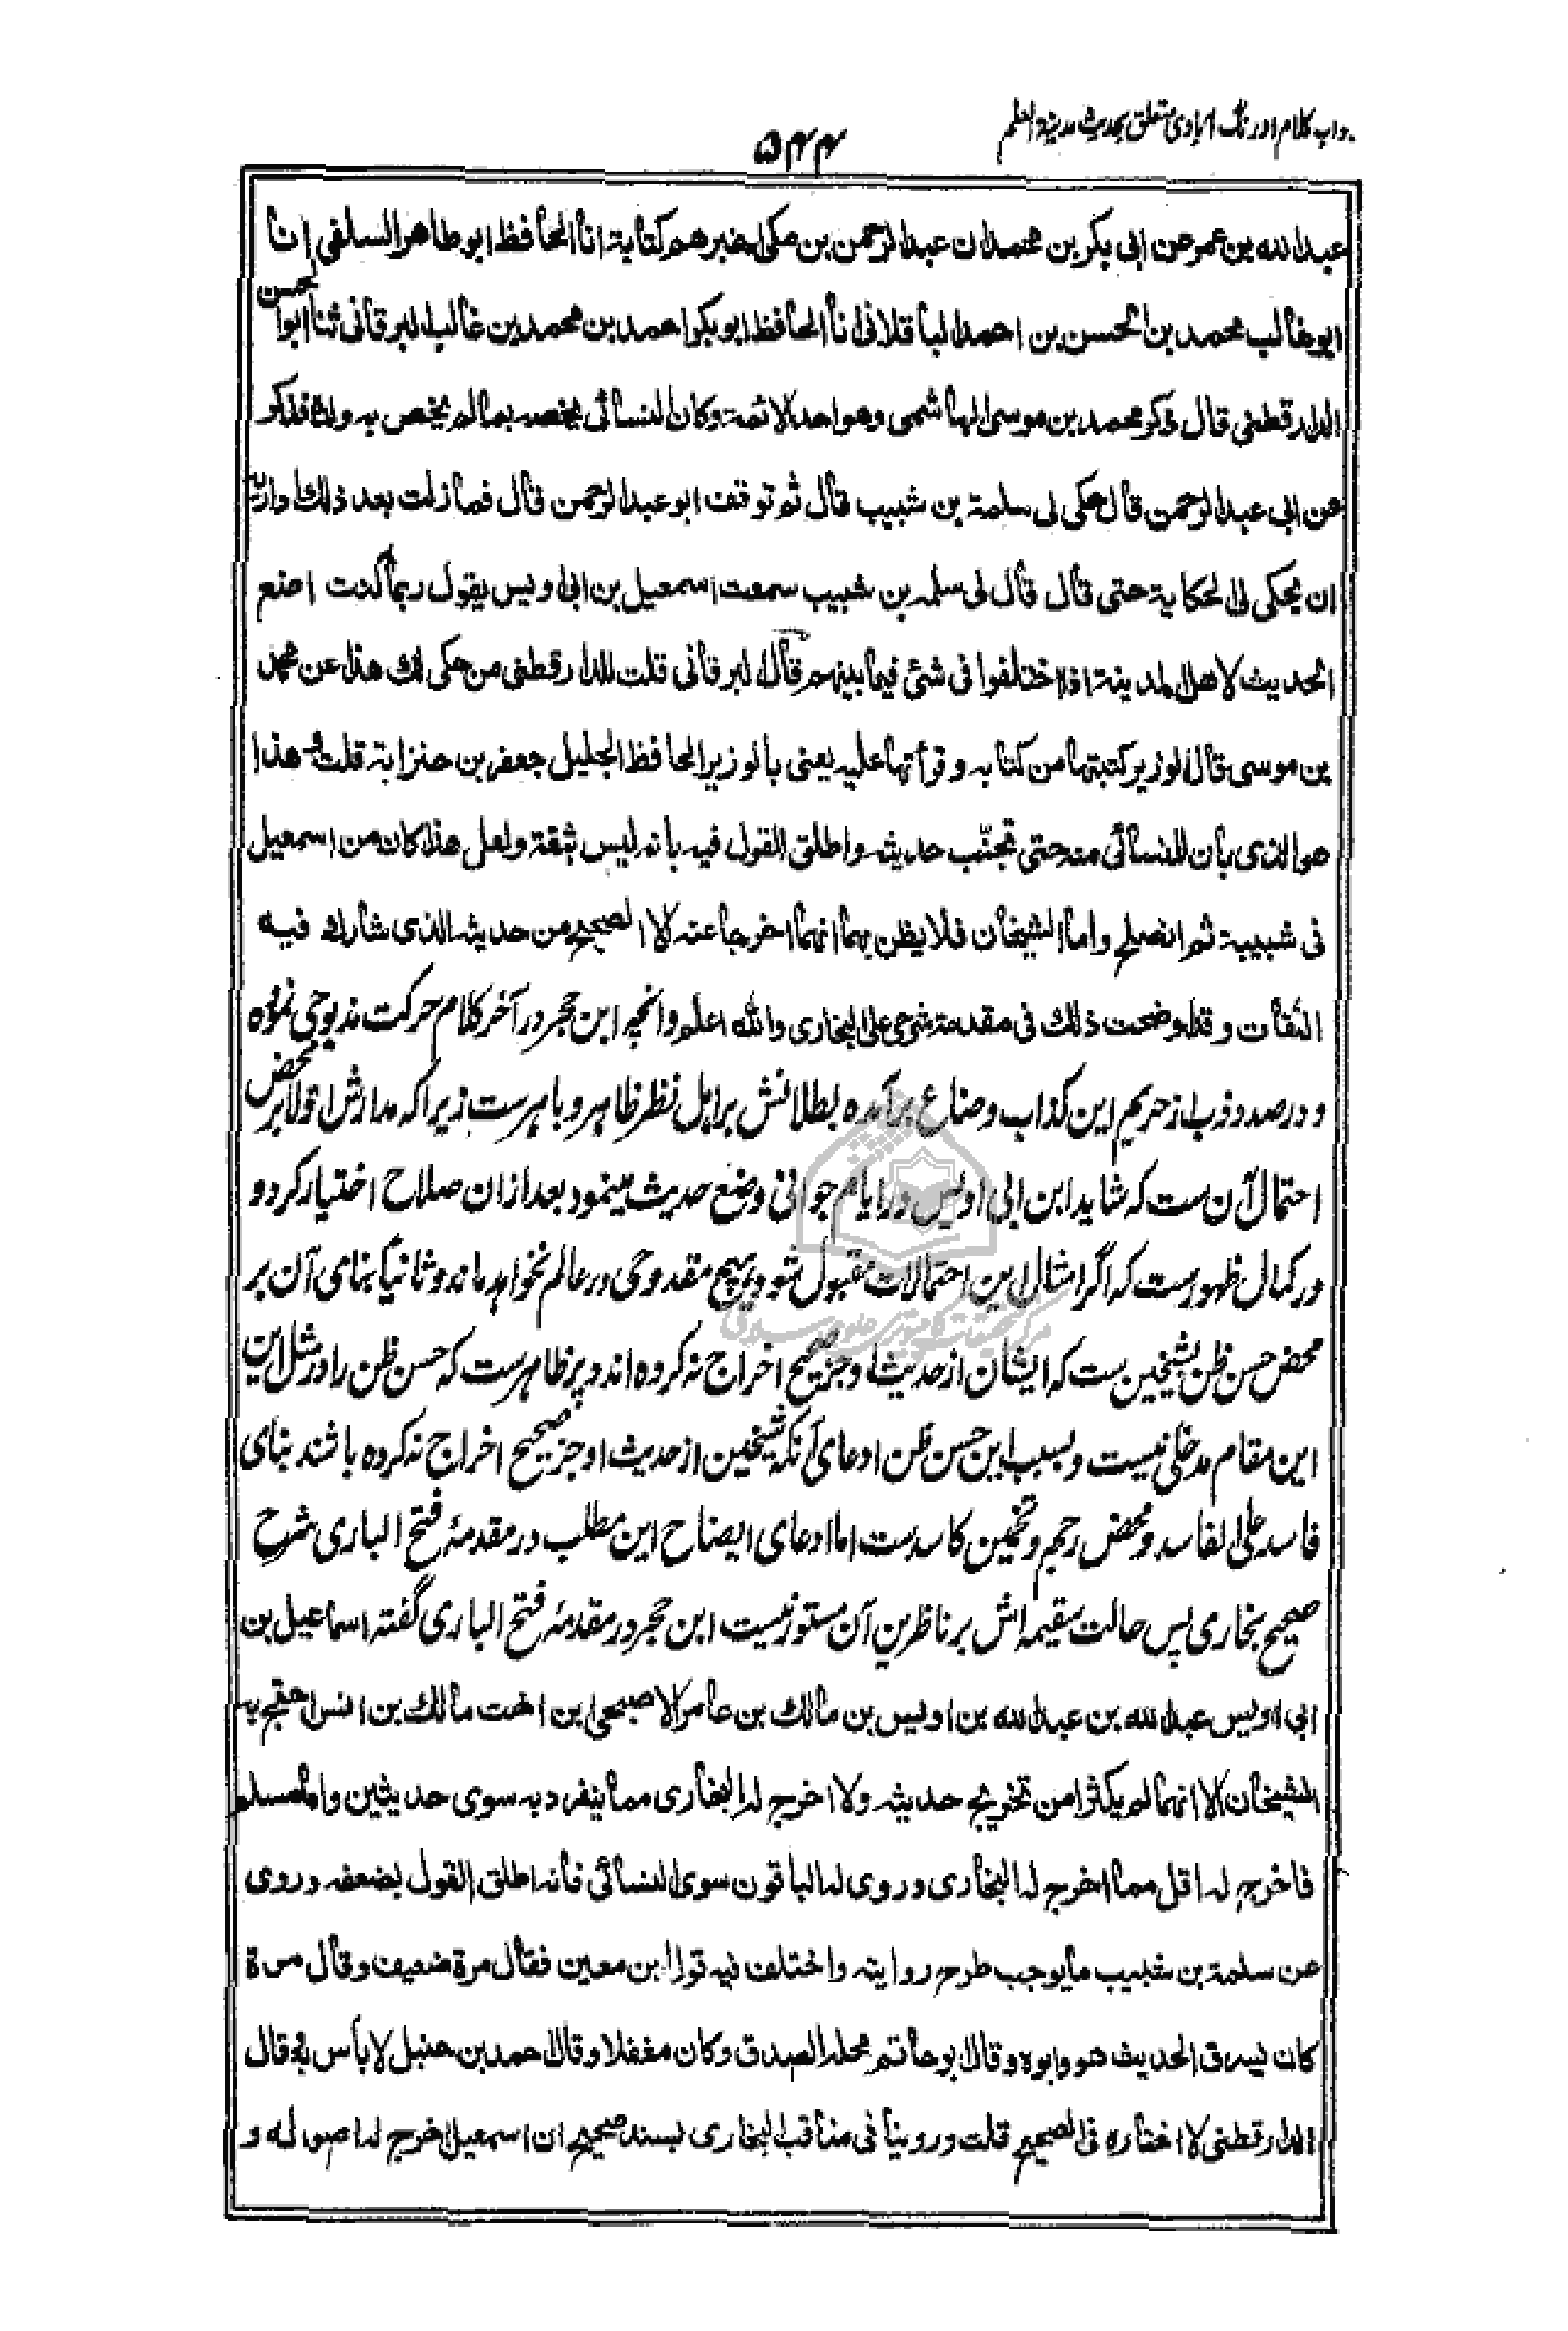 جواب کلام اورنگ آبادی متعلق بحدیث مدینة العلم
۵۴۴
عبد الله بن عمر عن ابی بکر بن محمد ان عبد الرحمن بن مکی اخبرهم کتابة انا الحافظ ابو طاهر السلفی انا
ابو غالب محمد بن الحسن بن احمد الباقلانی انا الحافظ ابو بکر احمد بن محمد بن غالب البرقانی ثنا ابو الحسن
الدارقطنی قال ذکر محمد بن موسی الهاشمی وهو احد الائمة وکان النسائی یخصه بما لم یخص به ولده فذکر
عن ابی عبد الرحمن قال حکی لی سلمة بن شبیب قال ثم توقف ابو عبد الرحمن قال فما زلت بعد ذلك داریه
ان یحکی لی الحکایة حتی قال قال لی سلمه بن شبیب سمعت اسمعیل بن ابی اویس یقول ربما کنت اضع
الحدیث لاهل المدینة اذا اختلفوا فی شئ فیما بینهم قال البرقانی قلت للدارقطنی من حکی لك هذا عن محمد
بن موسی قال الوزیر کتبتها من کتابه وقرأتها علیه یعنی بالوزیر الحافظ الجلیل جعفر بن حنزابة قلت هذا
هو الذی بان للنسائی منه حتی تجنّب حدیثه واطلق القول فیه بانه لیس بثقة ولعل هذا کان من اسمعیل
فی شبیبة ثم انصلح واما الشیخان فلا یظن بهما انهما اخرجا عنه الا الصحیح من حدیثه الذی شارك فیه
الثقات وقد اوضحت ذلك فی مقدمة شرحی علی البخاری والله اعلم وانچه ابن حجر در آخر کلام حرکت مذبوحی نموده
و درصدد ذب از حریم این کذاب وضاع برآمده بطلانش بر اهل نظر ظاهر و باهرست زیرا که مدارش اولا بر محض
احتمال آن ست که شاید ابن ابی اویس در ایام جوانی وضع حدیث مینمود بعد ازان صلاح اختیار کرد و
در کمال ظهورست که اگر امثال این احتمالات مقبول شود هیچ مقدوحی در عالم نخواهد ماند و ثانیا بنای آن بر
محض حسن ظن بشیخین ست که ایشان از حدیث او جز صحیح اخراج نه کرده اند و پر ظاهرست که حسن ظن را در مثل این
این مقام مدخلی نیست و بسبب این حسن ظن ادعای آنکه شیخین از حدیث او جز صحیح اخراج نه کرده باشند بنای
فاسد علی الفاسد و محض رجم و تخمین کاسدست اما ادعای ایضاح این مطلب در مقدمۀ فتح الباری شرح
صحیح بخاری پس حالت سقیمه اش بر ناظرین آن مستور نیست ابن حجر در مقدمۀ فتح الباری گفته اسماعیل بن
ابی اویس عبد الله بن عبد الله بن اویس بن مالك بن عامر الاصبحی ابن اخت مالك بن انس احتج به
الشیخان الا انهما لم یکثرا من تخریج حدیثه ولا اخرج له البخاری مما ینفرد به سوی حدیثین واما مسلم
فاخرج له اقل مما اخرج له البخاری وروی له الباقون سوی النسائی فانه اطلق القول بضعفه وروی
عن سلمة بن شبیب ما یوجب طرح روایته واختلف فیه قول ابن معین فقال مرة ضعیف وقال مرة
کان یسرق الحدیث هو وابوه وقال ابو حاتم محله الصدق وکان مغفلا وقال احمد بن حنبل لا بأس به وقال
الدارقطنی لا اختاره فی الصحیح قلت وروینا فی مناقب البخاری بسند صحیح ان اسمعیل اخرج له اصوله و